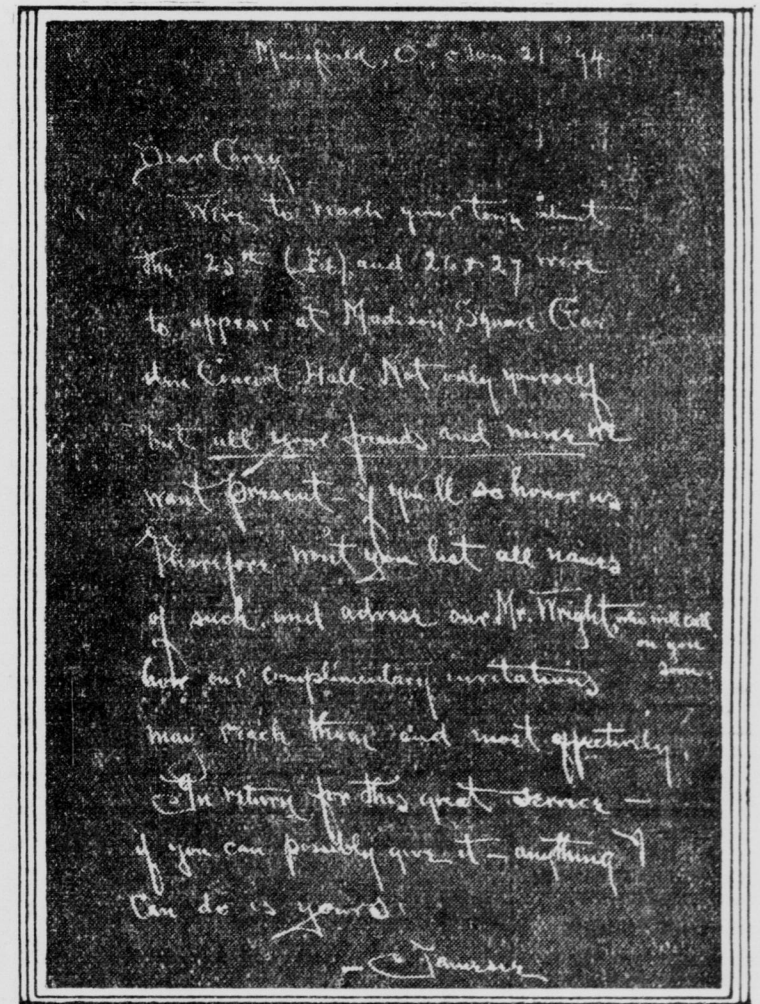 Mansfield, O., Jan 21 '94.
Dear Carey
We're to reach your town about
the 25th and 26 & 27 we're
to appear at Madison Square Gar
den Concert Hall Not only yourself
but all your friends and mine we
want present – if you'll so honor us
Therefore won't you list all names
of such and advise our Mr. Wright, who will call
on you
soon,
how our complimentary invitations
may reach them and most effectively.
In return for this great service –
if you can possibly give it – anything I
can do is yours.